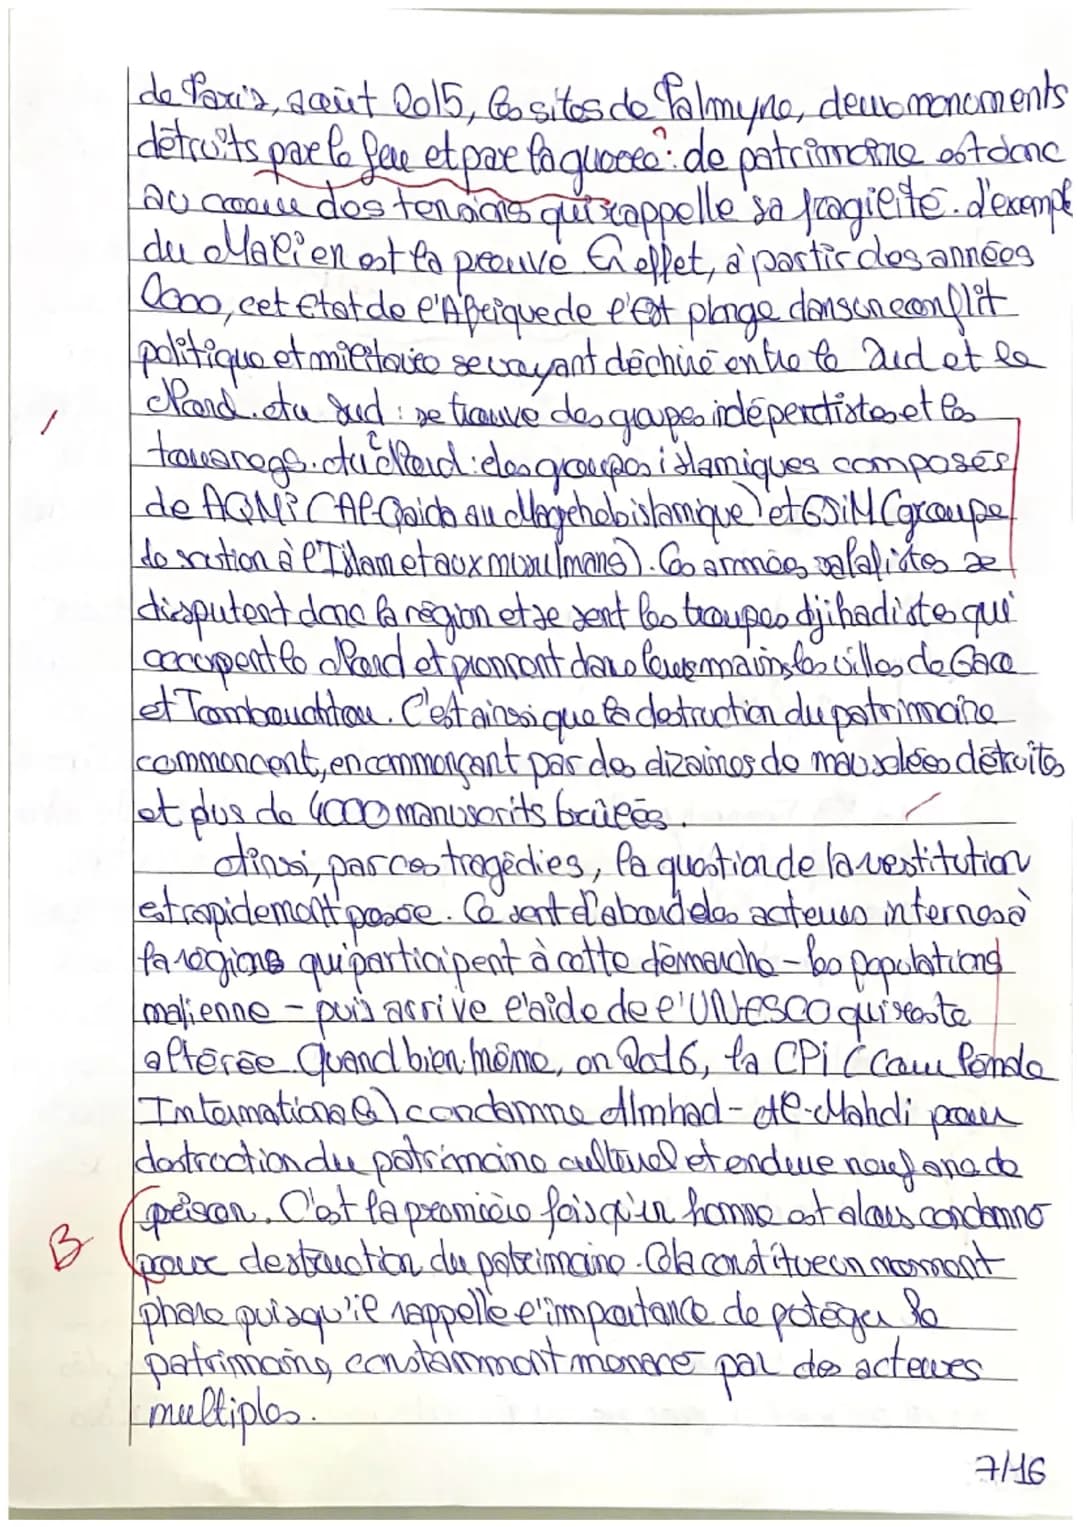 de Paris, août 2015, les sites de Palmyre, deux monuments
détruits par le feu et par la guerre : de patrimoine est donc
au coeur des tensions qui rappelle sa fragilité. L'exemple
du Mali en est la preuve. En effet, à partir des années
2000, cet Etat de l'Afrique de l'Est plonge dans un conflit
politique et militaire se voyant déchiré entre le Sud et le
Nord. Au Sud : se trouve des groupes indépendistes et les
touaregs. Au Nord : des groupes islamiques composés
de AQMI (Al-Qaida au Maghehb islamique) et GSIM (groupe
de soution à l'Islam et aux musulmans). Ces armées salafistes se
disputent donc la région et se sont les troupes djihadiste qui
occupent le Nord et prennent dans leurs mains les villes de Gao
et Tombouctou. C'est ainsi que la destruction du patrimoine
commencent, en commençant par des dizaines de mausolées détruits
et plus de 4000 manuscrits brûlés.
Ainsi, par ces tragédies, la question de la restitution
est rapidement posée. Ce sont d'abord des acteurs internes à
la régions qui participent à cette démarche - les populations
malienne - puis arrive l'aide de l'UNESCO qui reste
altérée. Quand bien même, en 2016, la CPI (Cour Pénale
Internationale) condamne Almhad-Al-Mahdi pour
destruction du patrimoine culturel et endure neuf ans de
prison. C'est la première fois qu'un homme est alors condamné
pour destruction du patrimoine. Cela constitue un moment
phare puisqu'il rappelle l'importance de potéger le
patrimoine, constamment menacé par des acteurs
multiples.
B
7/16